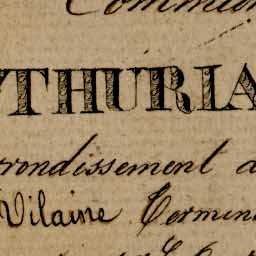 Commun
THURIA
rrondissement d
Vilaine Termin